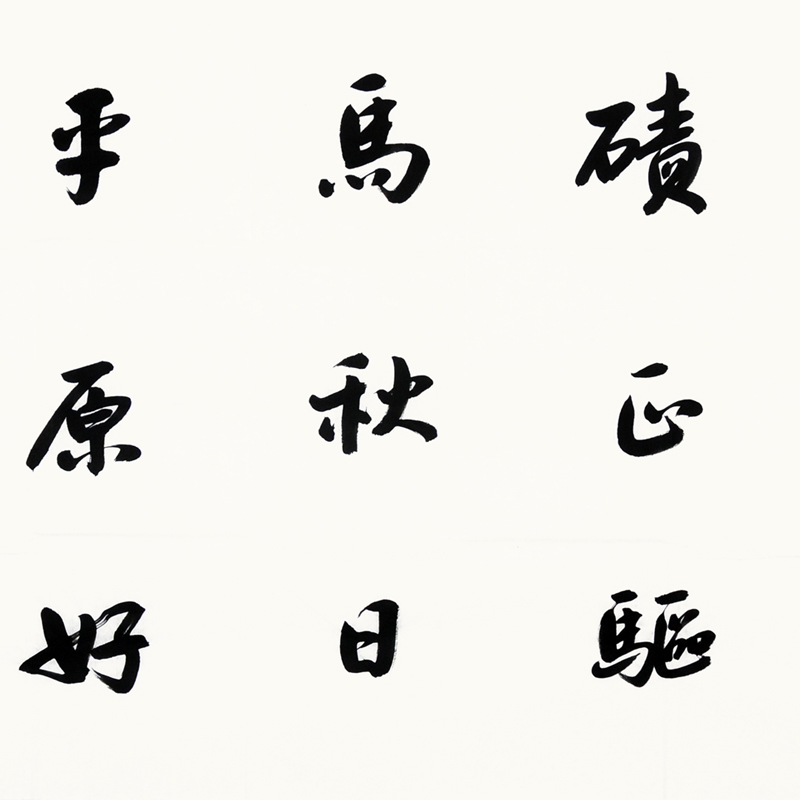 磧正驅
馬秋日
平原好